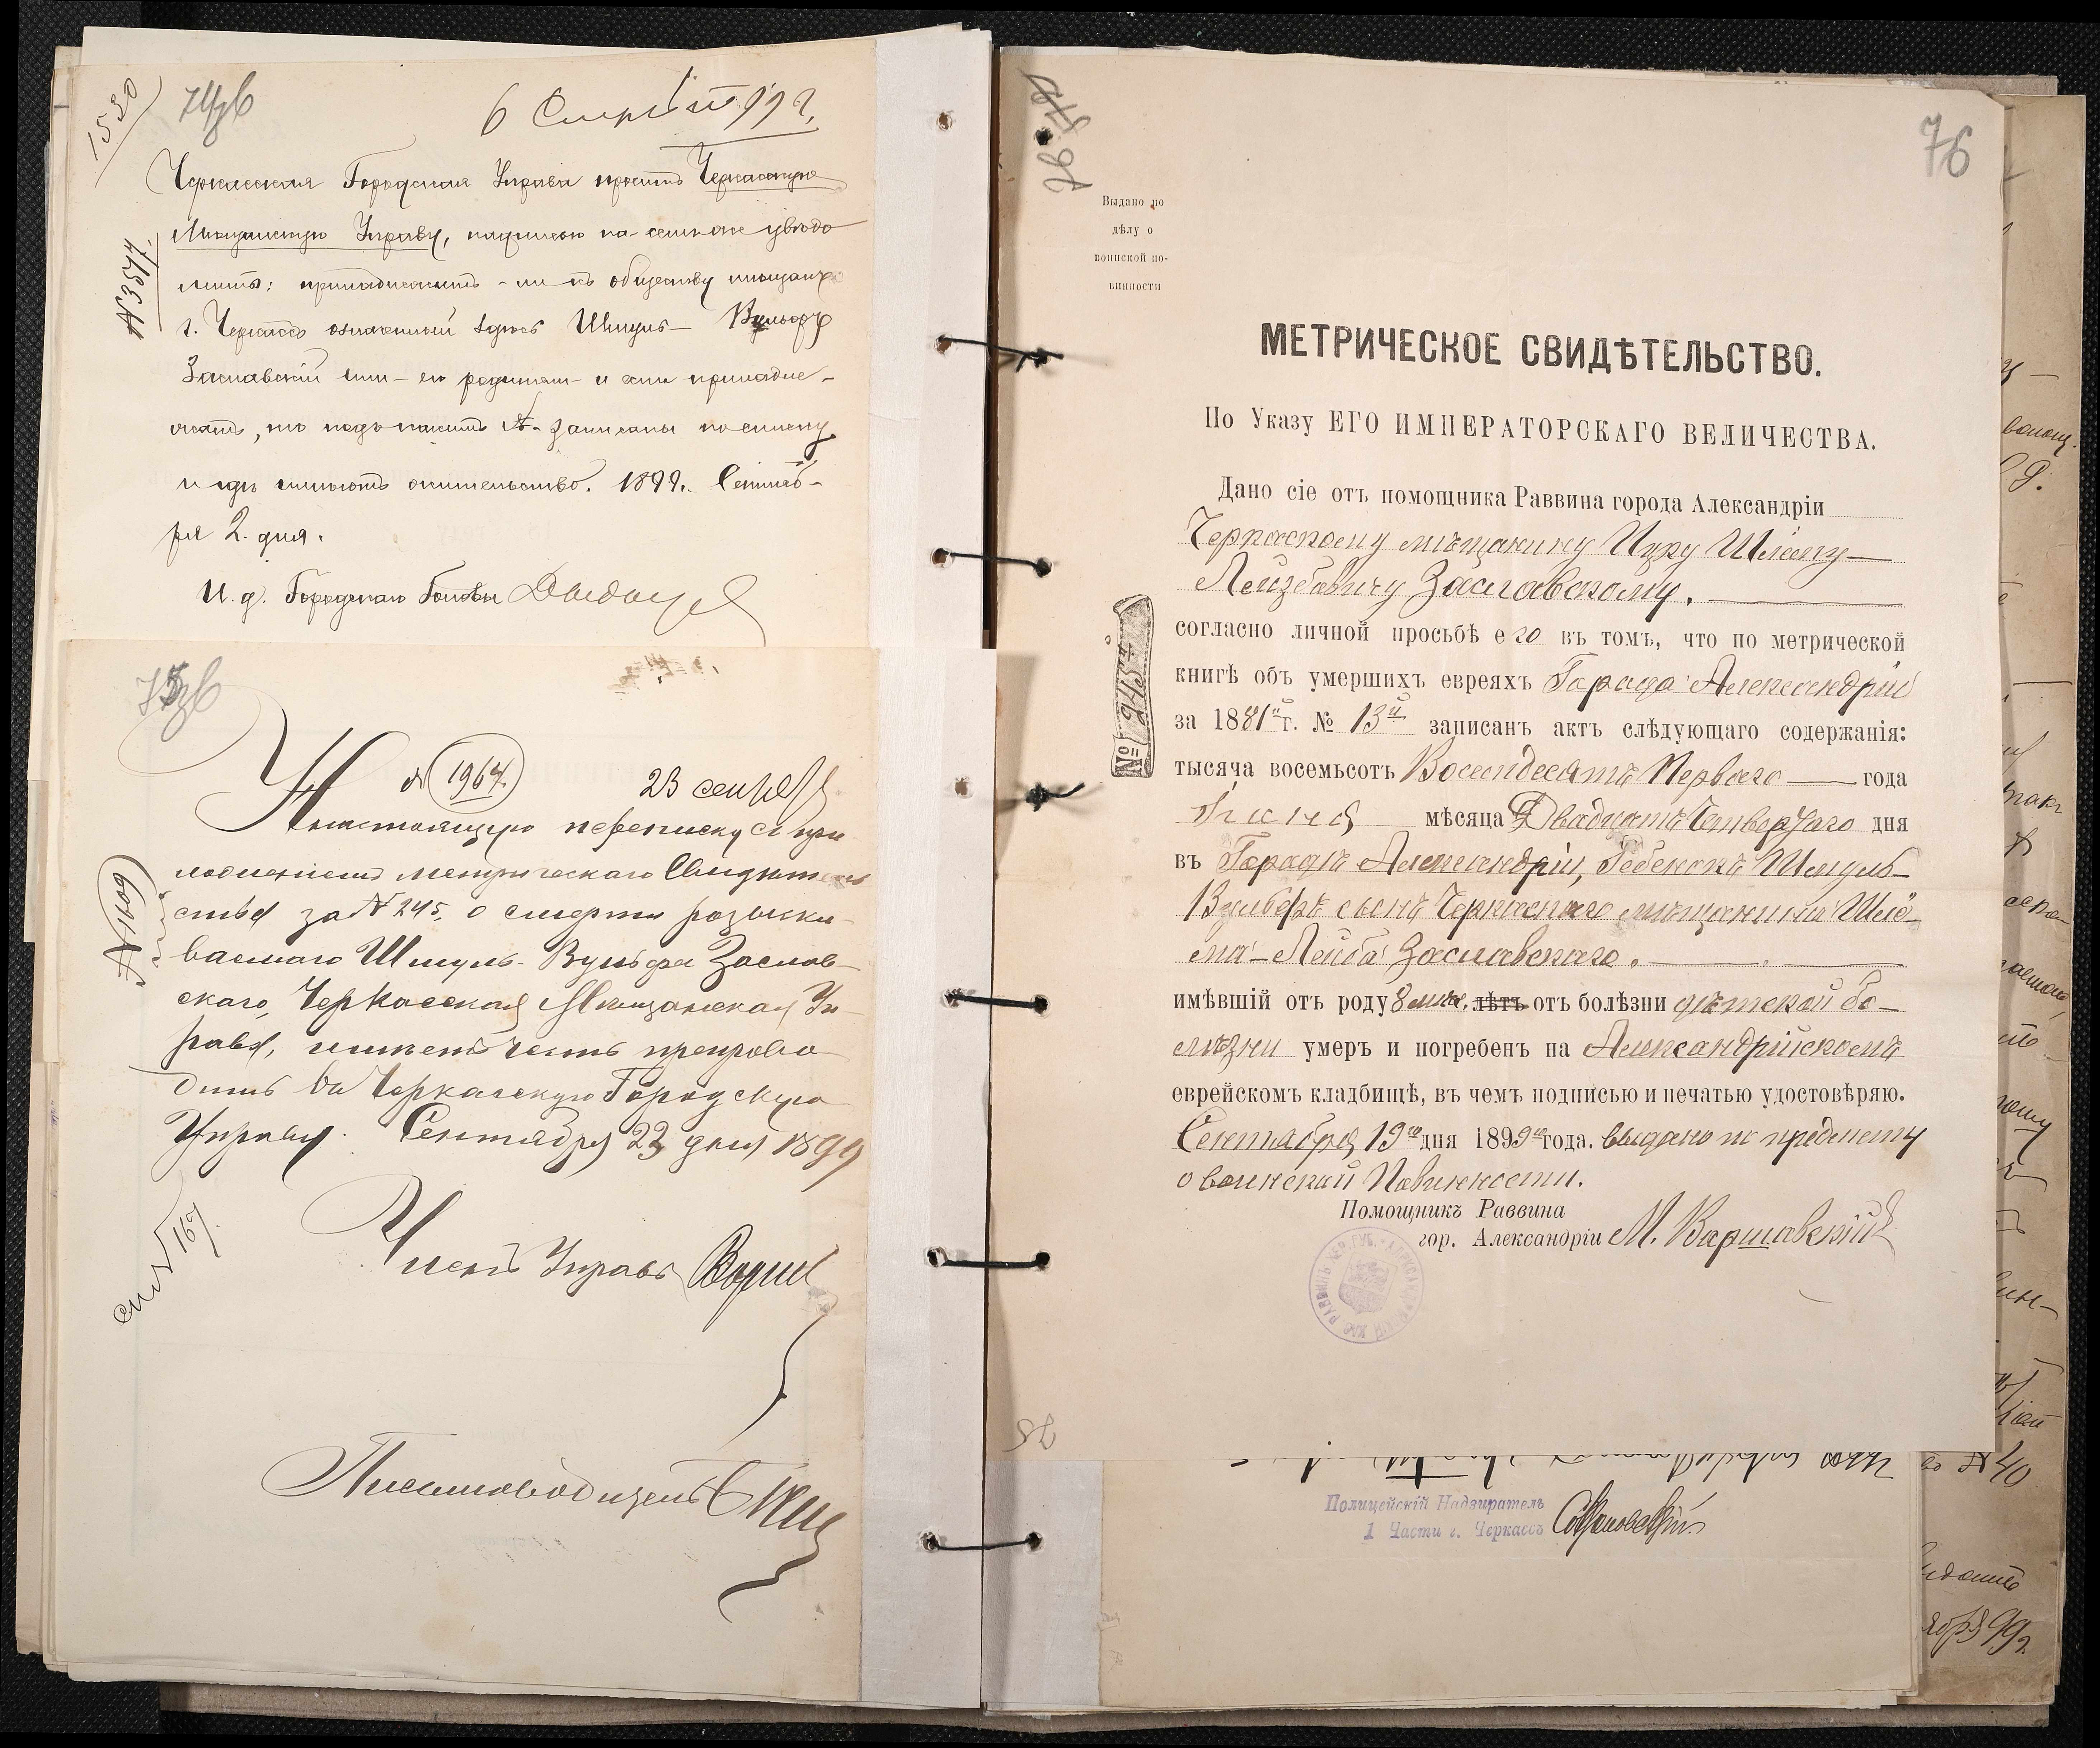 1530
74об
6 Сентяб 99 г.
Черкасская Городская Управа проситъ Черкасскую
Мещанскую Управу, надписью на семъ же увѣдо
мить: принадлежитъ-ли къ обществу мещанъ
г. Черкассъ означенный здесь Шмуль-Вульфъ
Заславскій или его родители и если принадле-
жатъ, то подъ какимъ № записаны по списку
и где имеютъ жительство. 1899. Сентяб-
ря 2 дня.
№ 3577
И. д. Городского Головы
75об
№ 1964.
23 сентяб
Настоящую переписку съ при
ложеніемъ метрическаго Свидетель
ства за № 245, о смерти розыски-
ваемаго Шмуль-Вульфа Заслав-
скаго, Черкасская Мещанская Уп-
рава, имеетъ честь препрово-
дить въ Черкасскую Городскую
Управу. Сентября 23 дня 1899
№ 1109
Членъ Управы
Письмоводитель
76
Выдано по
дѣлу о
воинской по-
винности
МЕТРИЧЕСКОЕ СВИДѢТЕЛЬСТВО.
По Указу ЕГО ИМПЕРАТОРСКАГО ВЕЛИЧЕСТВА.
Дано сіе отъ помощника Раввина города Александріи
Черкасскому мѣщанину Ицку Шлёму
Лейбовичу Заславскому.
согласно личной просьбѣ его въ томъ, что по метрической
книгѣ объ умершихъ евреяхъ Города Александріи
за 1881й г. № 13й записанъ актъ слѣдующаго содержанія:
тысяча восемьсотъ Восемдесятъ Перваго года
Іюня мѣсяца Двадцать Четвертаго дня
въ Городѣ Александріи, Ребенокъ Шмуль-
Вульфъ сынъ Черкасскаго мѣщанина Шлё-
ма-Лейба Заславскаго.
имѣвшій отъ роду 8 мѣс. лѣтъ отъ болѣзни дѣтской бо-
лѣзни умеръ и погребенъ на Александрійскомъ
еврейскомъ кладбищѣ, въ чемъ подписью и печатью удостовѣряю.
Сентября 19го дня 1899го года. Выдано по предмету
о воинской Повинности.
Помощникъ Раввина
гор. Александріи М. Варшавскій
№ 245й
Полицейскій Надзиратель
1 Части г. Черкассъ
№ 40